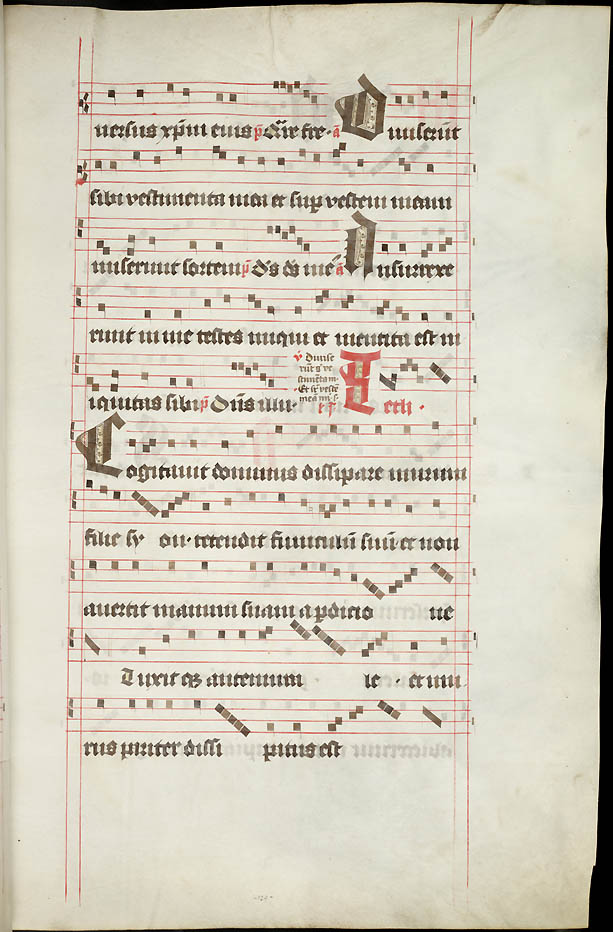 uersus xp̄m eius p̄ Qr̄e fre · a Diuiserūt
sibi vestimenta mea et sup̱ vestem meam
miserunt sortem p̄ Ds ds me a Insurrexe
runt in me testes iniqui et mentita est in
iquitas sibi p̄ Dn̄s illu ·
Lecti ·
Cogitauit dominus dissipare murum
filie sy on · tetendit funiculū suū et non
auertit manum suam a p̱ditio ne
Luxit q̱ antemura le · et mu
rus pariter dissi patus est